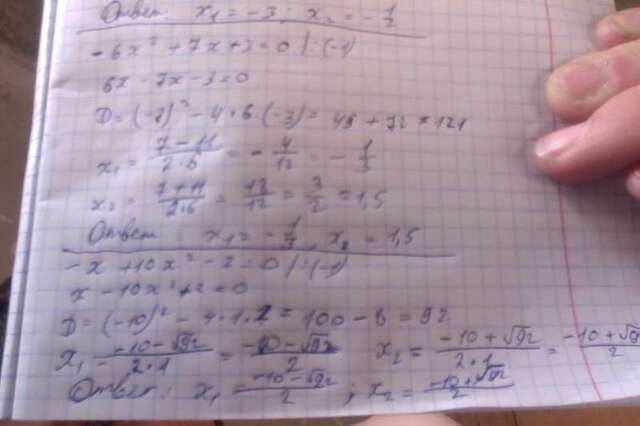 Ответ x₁ = -3 ; x₂ = -1/2
-6x² + 7x + 3 = 0 | :(-1)
6x - 7x - 3 = 0
D = (-7)² - 4·6·(-3) = 49 + 72 = 121
x₁ = (7-11)/(2·6) = -4/12 = -1/3
x₂ = (7+11)/(2·6) = 18/12 = 3/2 = 1,5
Ответ : x₁ = -1/3, x₂ = 1,5
-x + 10x² - 2 = 0 | :(-1)
x - 10x² + 2 = 0
D = (-10)² - 4·1·2 = 100 - 8 = 92
x₁ = (-10-√92)/(2·1) = (-10-√92)/2 x₂ = (-10+√92)/(2·1) = (-10+√9)/2
Ответ : x₁ = (-10-√92)/2 ; x₂ = (-10+√92)/2